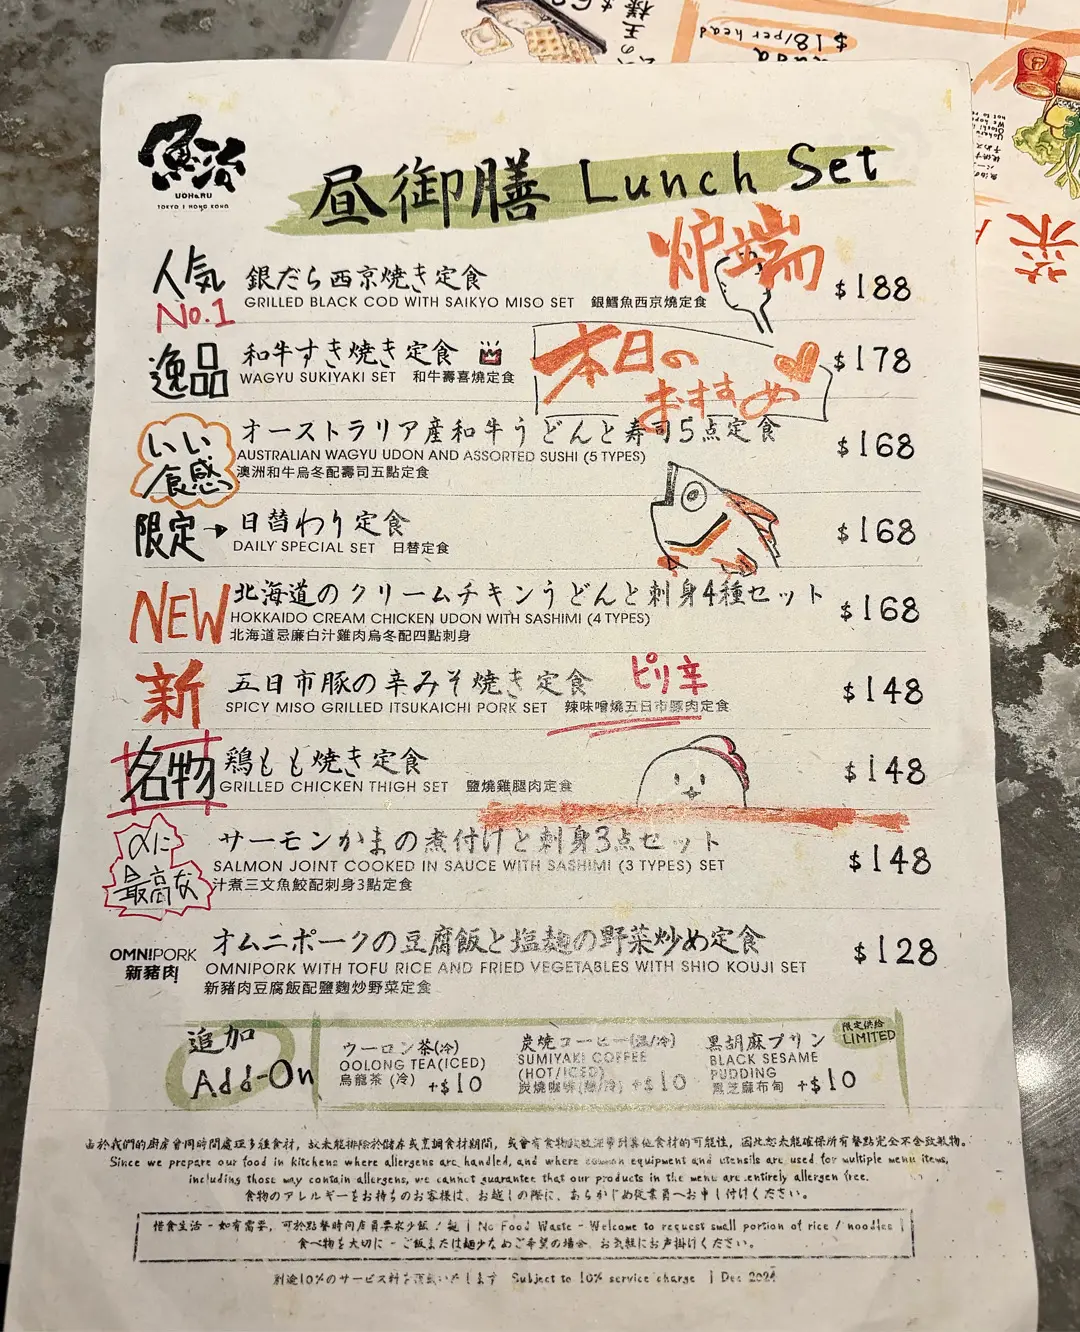 魚治
UOHARU
TOKYO | HONG KONG
昼御膳 Lunch Set
炉端
人気
No.1
銀だら西京焼き定食
GRILLED BLACK COD WITH SAIKYO MISO SET 銀鱈魚西京燒定食
$188
逸品
和牛すき焼き定食
WAGYU SUKIYAKI SET 和牛壽喜燒定食
$178
本日の
おすすめ
いい
食感
オーストラリア産和牛うどんと寿司5点定食
AUSTRALIAN WAGYU UDON AND ASSORTED SUSHI (5 TYPES)
澳洲和牛烏冬配壽司五點定食
$168
限定→
日替わり定食
DAILY SPECIAL SET 日替定食
$168
NEW
北海道のクリームチキンうどんと刺身4種セット
HOKKAIDO CREAM CHICKEN UDON WITH SASHIMI (4 TYPES)
北海道忌廉白汁雞肉烏冬配四點刺身
$168
新
五日市豚の辛みそ焼き定食
ピリ辛
SPICY MISO GRILLED ITSUKAICHI PORK SET 辣味噌燒五日市豚肉定食
$148
名物
鶏もも焼き定食
GRILLED CHICKEN THIGH SET 鹽燒雞腿肉定食
$148
最高な
サーモンかまの煮付けと刺身3点セット
SALMON JOINT COOKED IN SAUCE WITH SASHIMI (3 TYPES) SET
汁煮三文魚鮫配刺身3點定食
$148
OMNIPORK
新豬肉
オムニポークの豆腐飯と塩麹の野菜炒め定食
OMNIPORK WITH TOFU RICE AND FRIED VEGETABLES WITH SHIO KOUJI SET
新豬肉豆腐飯配鹽麴炒野菜定食
$128
追加
Add-On
ウーロン茶(冷)
OOLONG TEA(ICED)
烏龍茶 (冷) +$10
炭焼コーヒー(温/冷)
SUMIYAKI COFFEE
(HOT/ICED)
炭燒咖啡(熱/冷) +$10
黒胡麻プリン
BLACK SESAME
PUDDING
黑芝麻布甸 +$10
限定供給
LIMITED
由於我們的廚房會同時間處理多種食材，故未能排除於儲存或烹調食材期間，或會有食物致敏源帶到其他食材的可能性，因此恕未能確保所有餐點完全不含致敏物。
Since we prepare our food in kitchens where allergens are handled, and where common equipment and utensils are used for multiple menu items,
including those may contain allergens, we cannot guarantee that our products in the menu are entirely allergen free.
食物のアレルギーをお持ちのお客様は、お越しの際に、あらかじめ従業員へお申し付けください。
惜食生活 - 如有需要，可於點餐時向店員要求少飯 / 麵 | No Food Waste - Welcome to request small portion of rice / noodles |
食べ物を大切に - ご飯または麺少なめご希望の場合、お気軽にお声掛けください。
別途10%のサービス料を頂戴いたします Subject to 10% service charge | Dec 2024
$18/per head